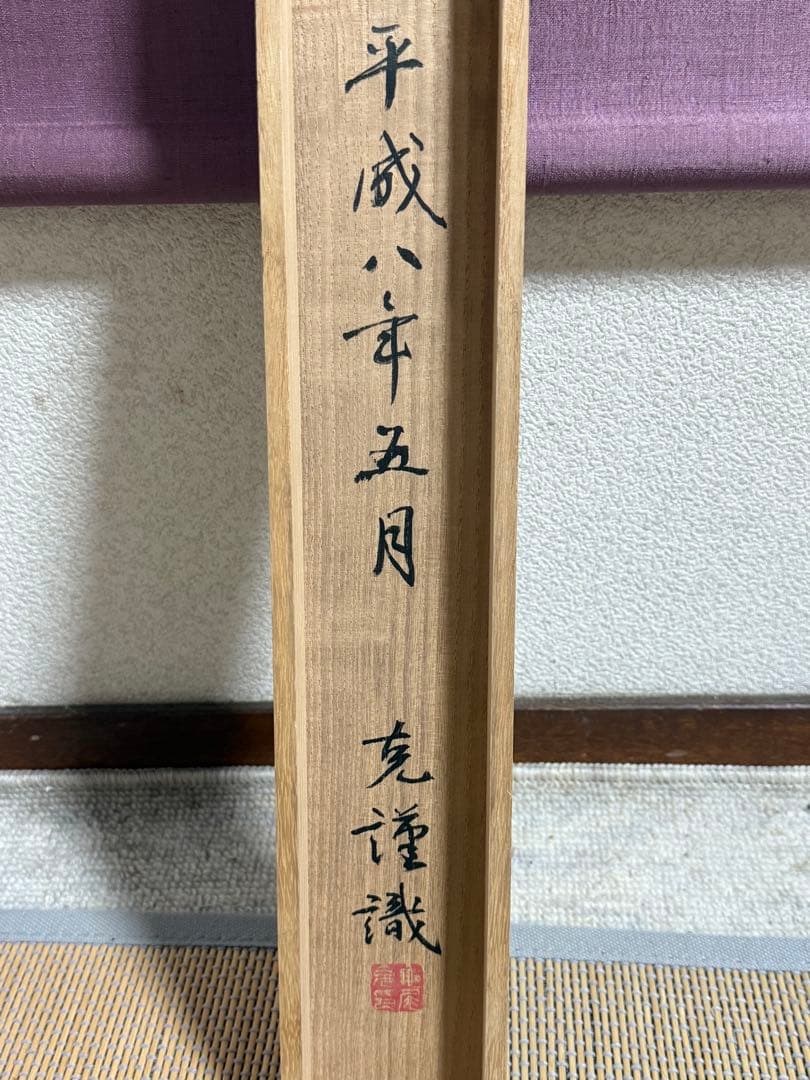 平成八年五月
克謹識